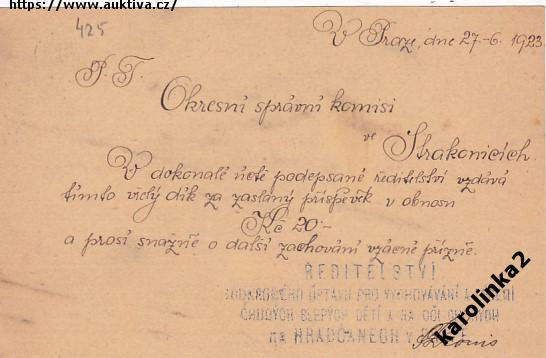 https://www.auktiva.cz/
425
V Praze, dne 27-6. 1923.
P. T.
Okresní správní komisi
ve
Strakonicích.
V dokonalé úctě podepsané ředitelství vzdává
tímto vřelý dík za zaslaný příspěvek v obnosu
Kč 20·-
a prosí snažně o další zachování vzácné přízně.
ŘEDITELSTVÍ
ÚSTAVU PRO VYCHOVÁVÁNÍ A
CHUDÝCH SLEPÝCH DĚTÍ A NA OČI
na HRADČANECH v
karolinka2